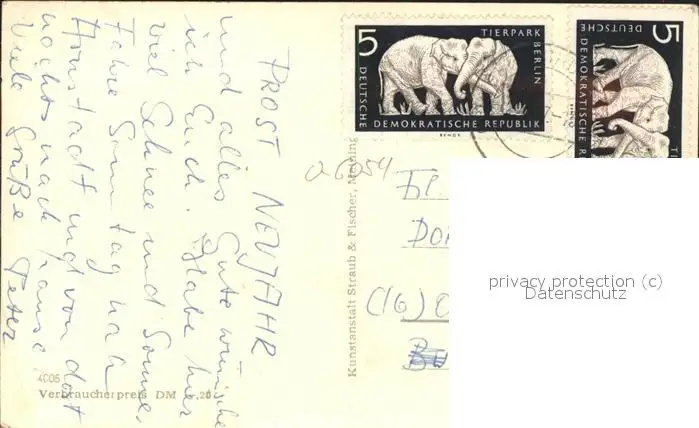 PROST NEUJAHR
und alles Gute wünsche
ich Euch. Habe hier
viel Schnee und Sonne,
fahre Sonntag nach
Arnstadt und von dort
nachts nach Hause.
Viele Grüße Peter
4006
Verbraucherpreis DM 0,20
Kunstanstalt Straub & Fischer, Meining
5
TIERPARK BERLIN
DEUTSCHE
DEMOKRATISCHE REPUBLIK
5
DEUTSCHE
DEMOKRATISCHE R
TI
(16)
privacy protection (c)
Datenschutz